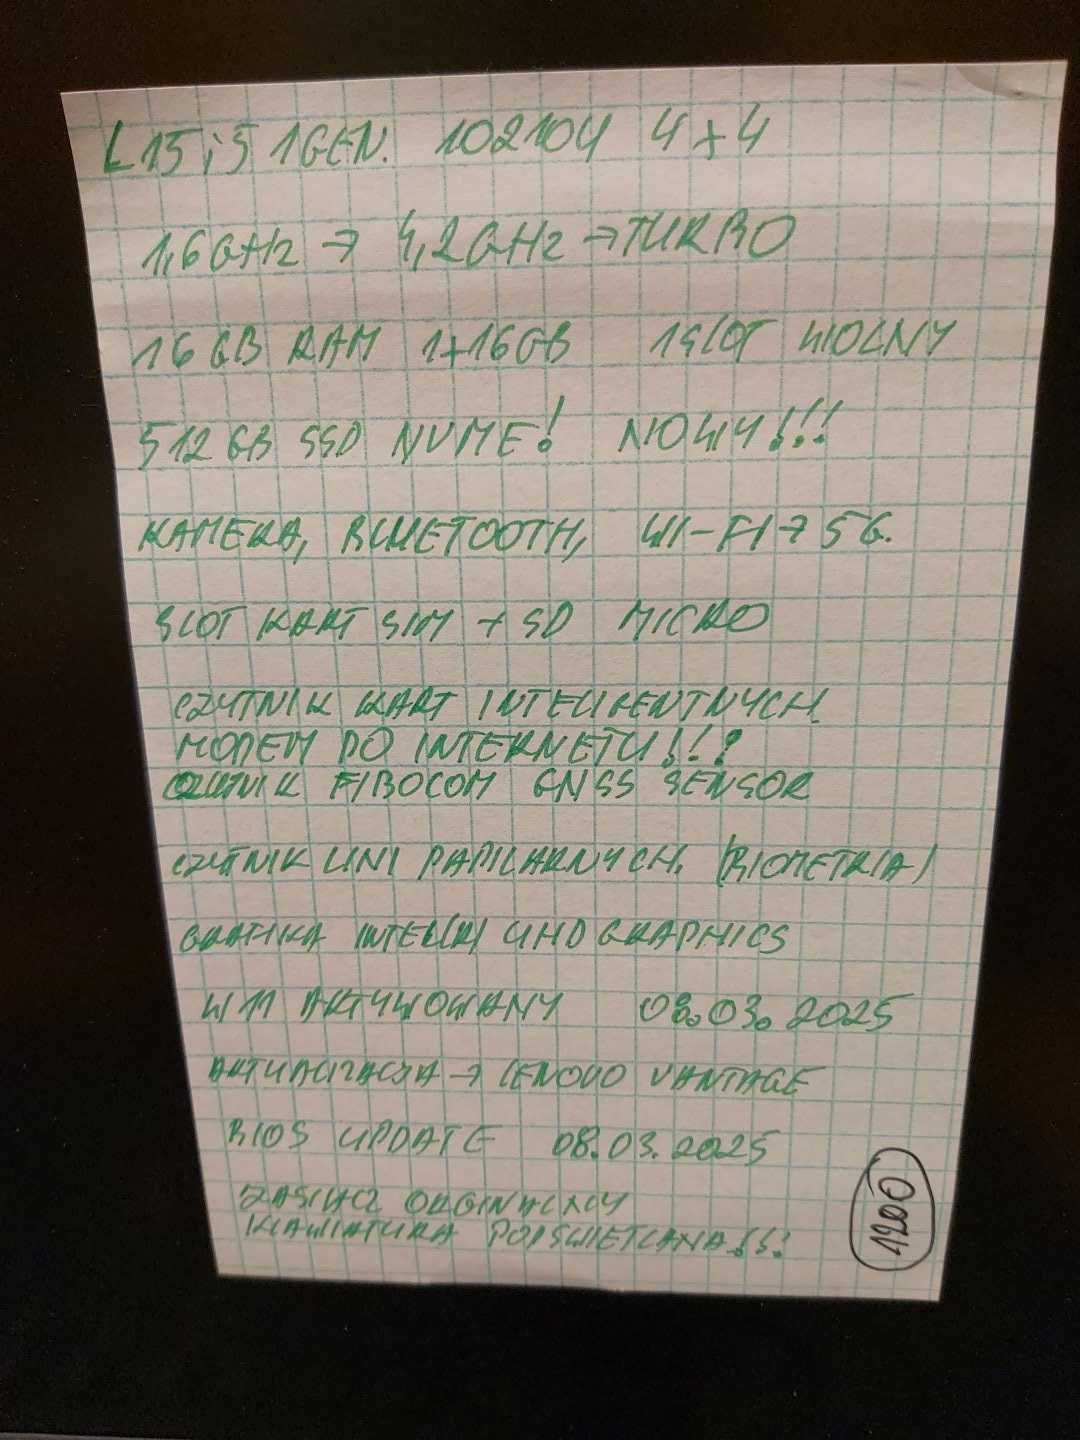 L15 i5 1GEN. 10210U 4+4
1,6GHz → 4,2GHz → TURBO
16 GB RAM 1+16GB 1SLOT WOLNY
512 GB SSD NVME! NOWY!!!
KAMERA, BLUETOOTH, WI-FI → 5G.
SLOT KART SIM + SD MICRO
CZYTNIK KART INTELIGENTNYCH
MODEM DO INTERNETU!!!
CZUJNIK FIBOCOM GNSS SENSOR
CZYTNIK LINI PAPILARNYCH. (BIOMETRIA)
GRAFIKA INTEL(R) UHD GRAPHICS
W11 AKTYWOWANY 08.03.2025
AKTUALIZACJA → LENOVO VANTAGE
BIOS UPDATE 08.03.2025
ZASILACZ ORGINALNY
KLAWIATURA PODSWIETLANA!!!
1200